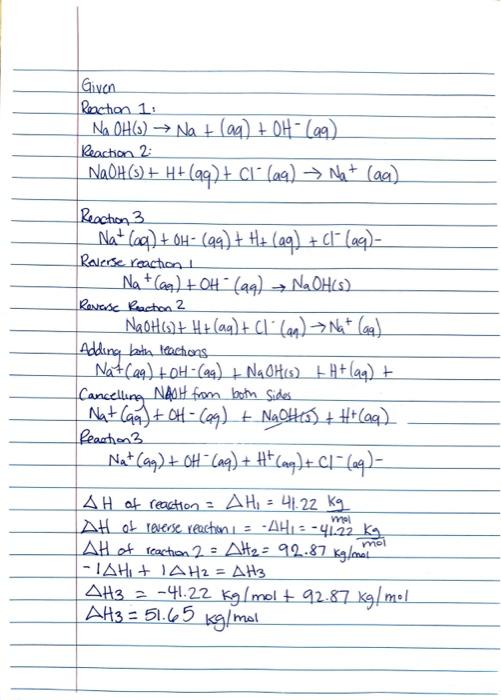 Given
Reaction 1:
NaOH(s) → Na + (aq) + OH⁻ (aq)
Reaction 2:
NaOH(s) + H+ (aq) + Cl⁻ (aq) → Na⁺ (aq)
Reaction 3
Na⁺ (aq) + OH- (aq) + H+ (aq) + Cl⁻ (aq)-
Reverse reaction 1
Na⁺ (aq) + OH⁻ (aq) → NaOH(s)
Reverse Reaction 2
NaOH(s) + H+ (aq) + Cl⁻ (aq) → Na⁺ (aq)
Adding both reactions
Na+ (aq) + OH- (aq) + NaOH(s) + H+ (aq) +
Cancelling NAOH from both sides
Na+ (aq) + OH- (aq) + NaOH(s) + H+ (aq)
Reaction 3
Na⁺ (aq) + OH⁻ (aq) + H⁺ (aq) + Cl⁻ (aq)-
ΔH of reaction = ΔH₁ = 41.22 kg/mol
ΔH of reverse reaction 1 = -ΔH₁ = -41.22 kg/mol
ΔH of reaction 2 = ΔH₂ = 92.87 kg/mol
-1ΔH₁ + 1ΔH2 = ΔH3
ΔH3 = -41.22 kg/mol + 92.87 kg/mol
ΔH3 = 51.65 kg/mol